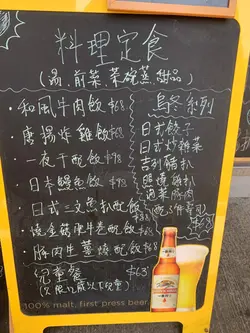 料理定食
(湯.前菜.茶碗蒸.甜品)
・和風牛肉飯 $68
・唐揚炸雞飯 $68
・一夜干配飯 $78
・日本鰻魚飯 $98
・日式三文魚扒配飯
・燒金菇牛卷配飯 $68
・豚肉生薑燒配飯 $68
兒童餐 $63
烏冬系列
日式餃子
日式炸雜菜
吉列豬扒
照燒雞扒
100% malt. first press beer